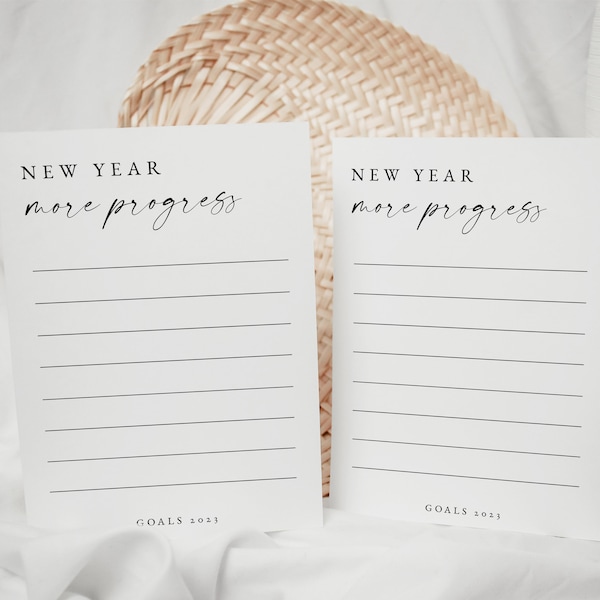 NEW YEAR
more progress
GOALS 2023
NEW YEAR
more progress
GOALS 2023